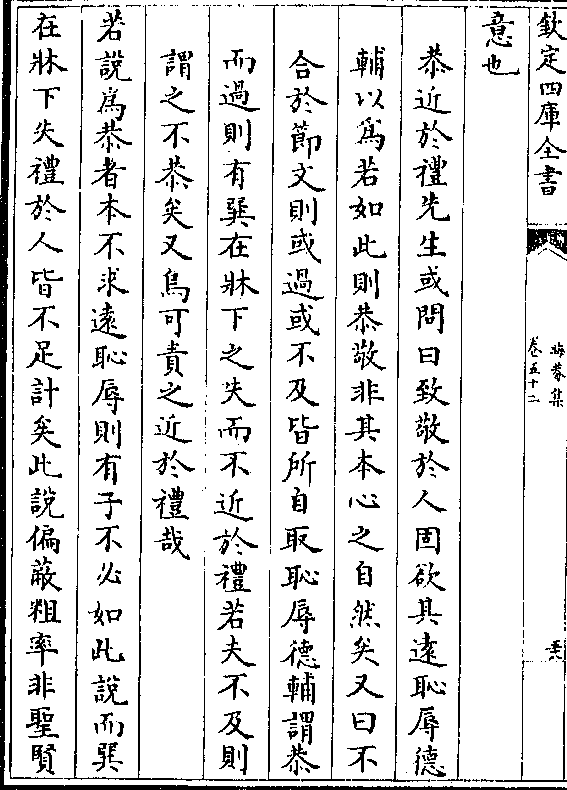 欽定四庫全書
晦菴集
卷五十二
意也
恭近於禮先生或問曰致敬於人固欲其遠恥辱德
輔以爲若如此則恭敬非其本心之自然矣又曰不
合於節文則或過或不及皆所自取恥辱德輔謂恭
而過則有巽在牀下之失而不近於禮若夫不及則
謂之不恭矣又烏可責之近於禮哉
若說爲恭者本不求遠恥辱則有子不必如此說而巽
在牀下失禮於人皆不足計矣此說偏蔽粗率非聖賢